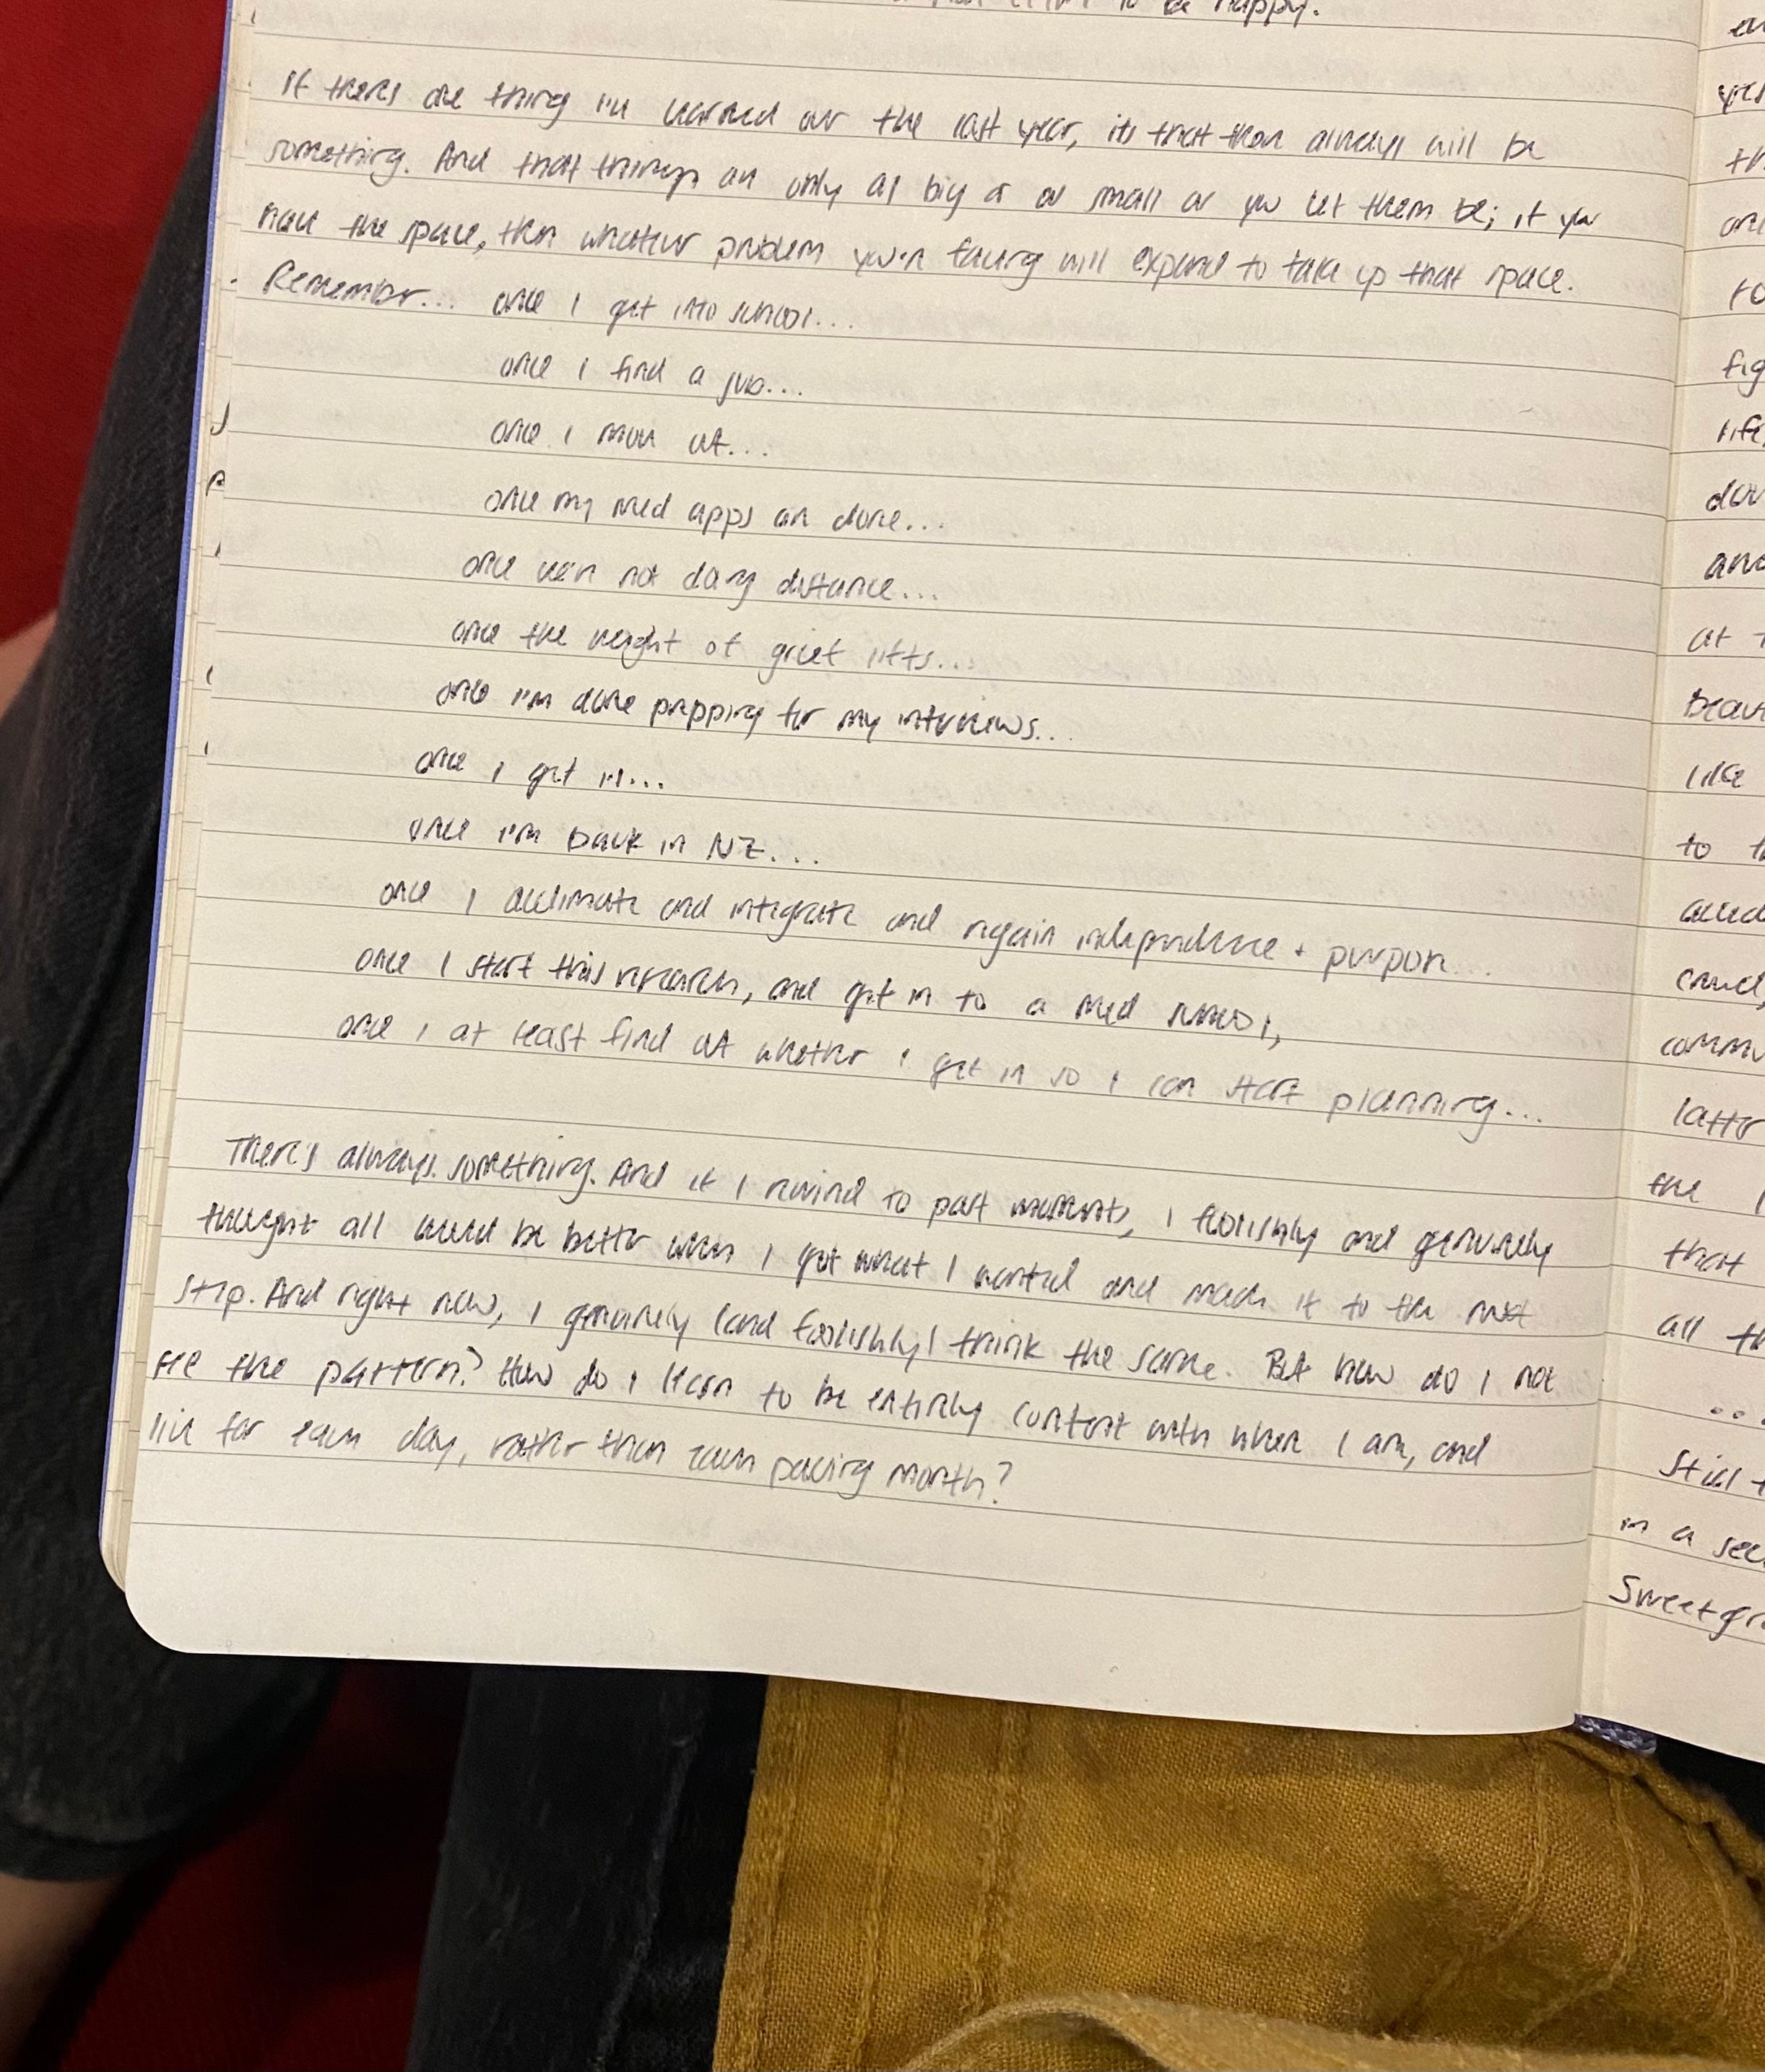 to be happy.
If there's one thing I've learned over the last year, its that there always will be
something. And that things are only as big a or small as you let them be; if you
have the space, then whatever problem you're facing will expand to take up that space.
Remember... once I get into school...
once I find a job...
once I move out...
once my med apps are done...
once we're not doing distance...
once the weight of grief lifts...
once I'm done prepping for my interviews...
once I get in...
once I'm back in NZ...
once I acclimate and integrate and regain independence + purpose...
once I start this research, and get in to a med school,
once I at least find out whether I get in so I can start planning...
There's always something. And if I rewind to past moments, I foolishly and genuinely
thought all would be better when I got what I wanted and made it to the next
step. And right now, I genuinely (and foolishly) think the same. But how do I not
see the pattern? How do I learn to be entirely content with where I am, and
live for each day, rather than each passing month?
th
fig
life,
and
at
like
to
the
that
all th
...
still
in a